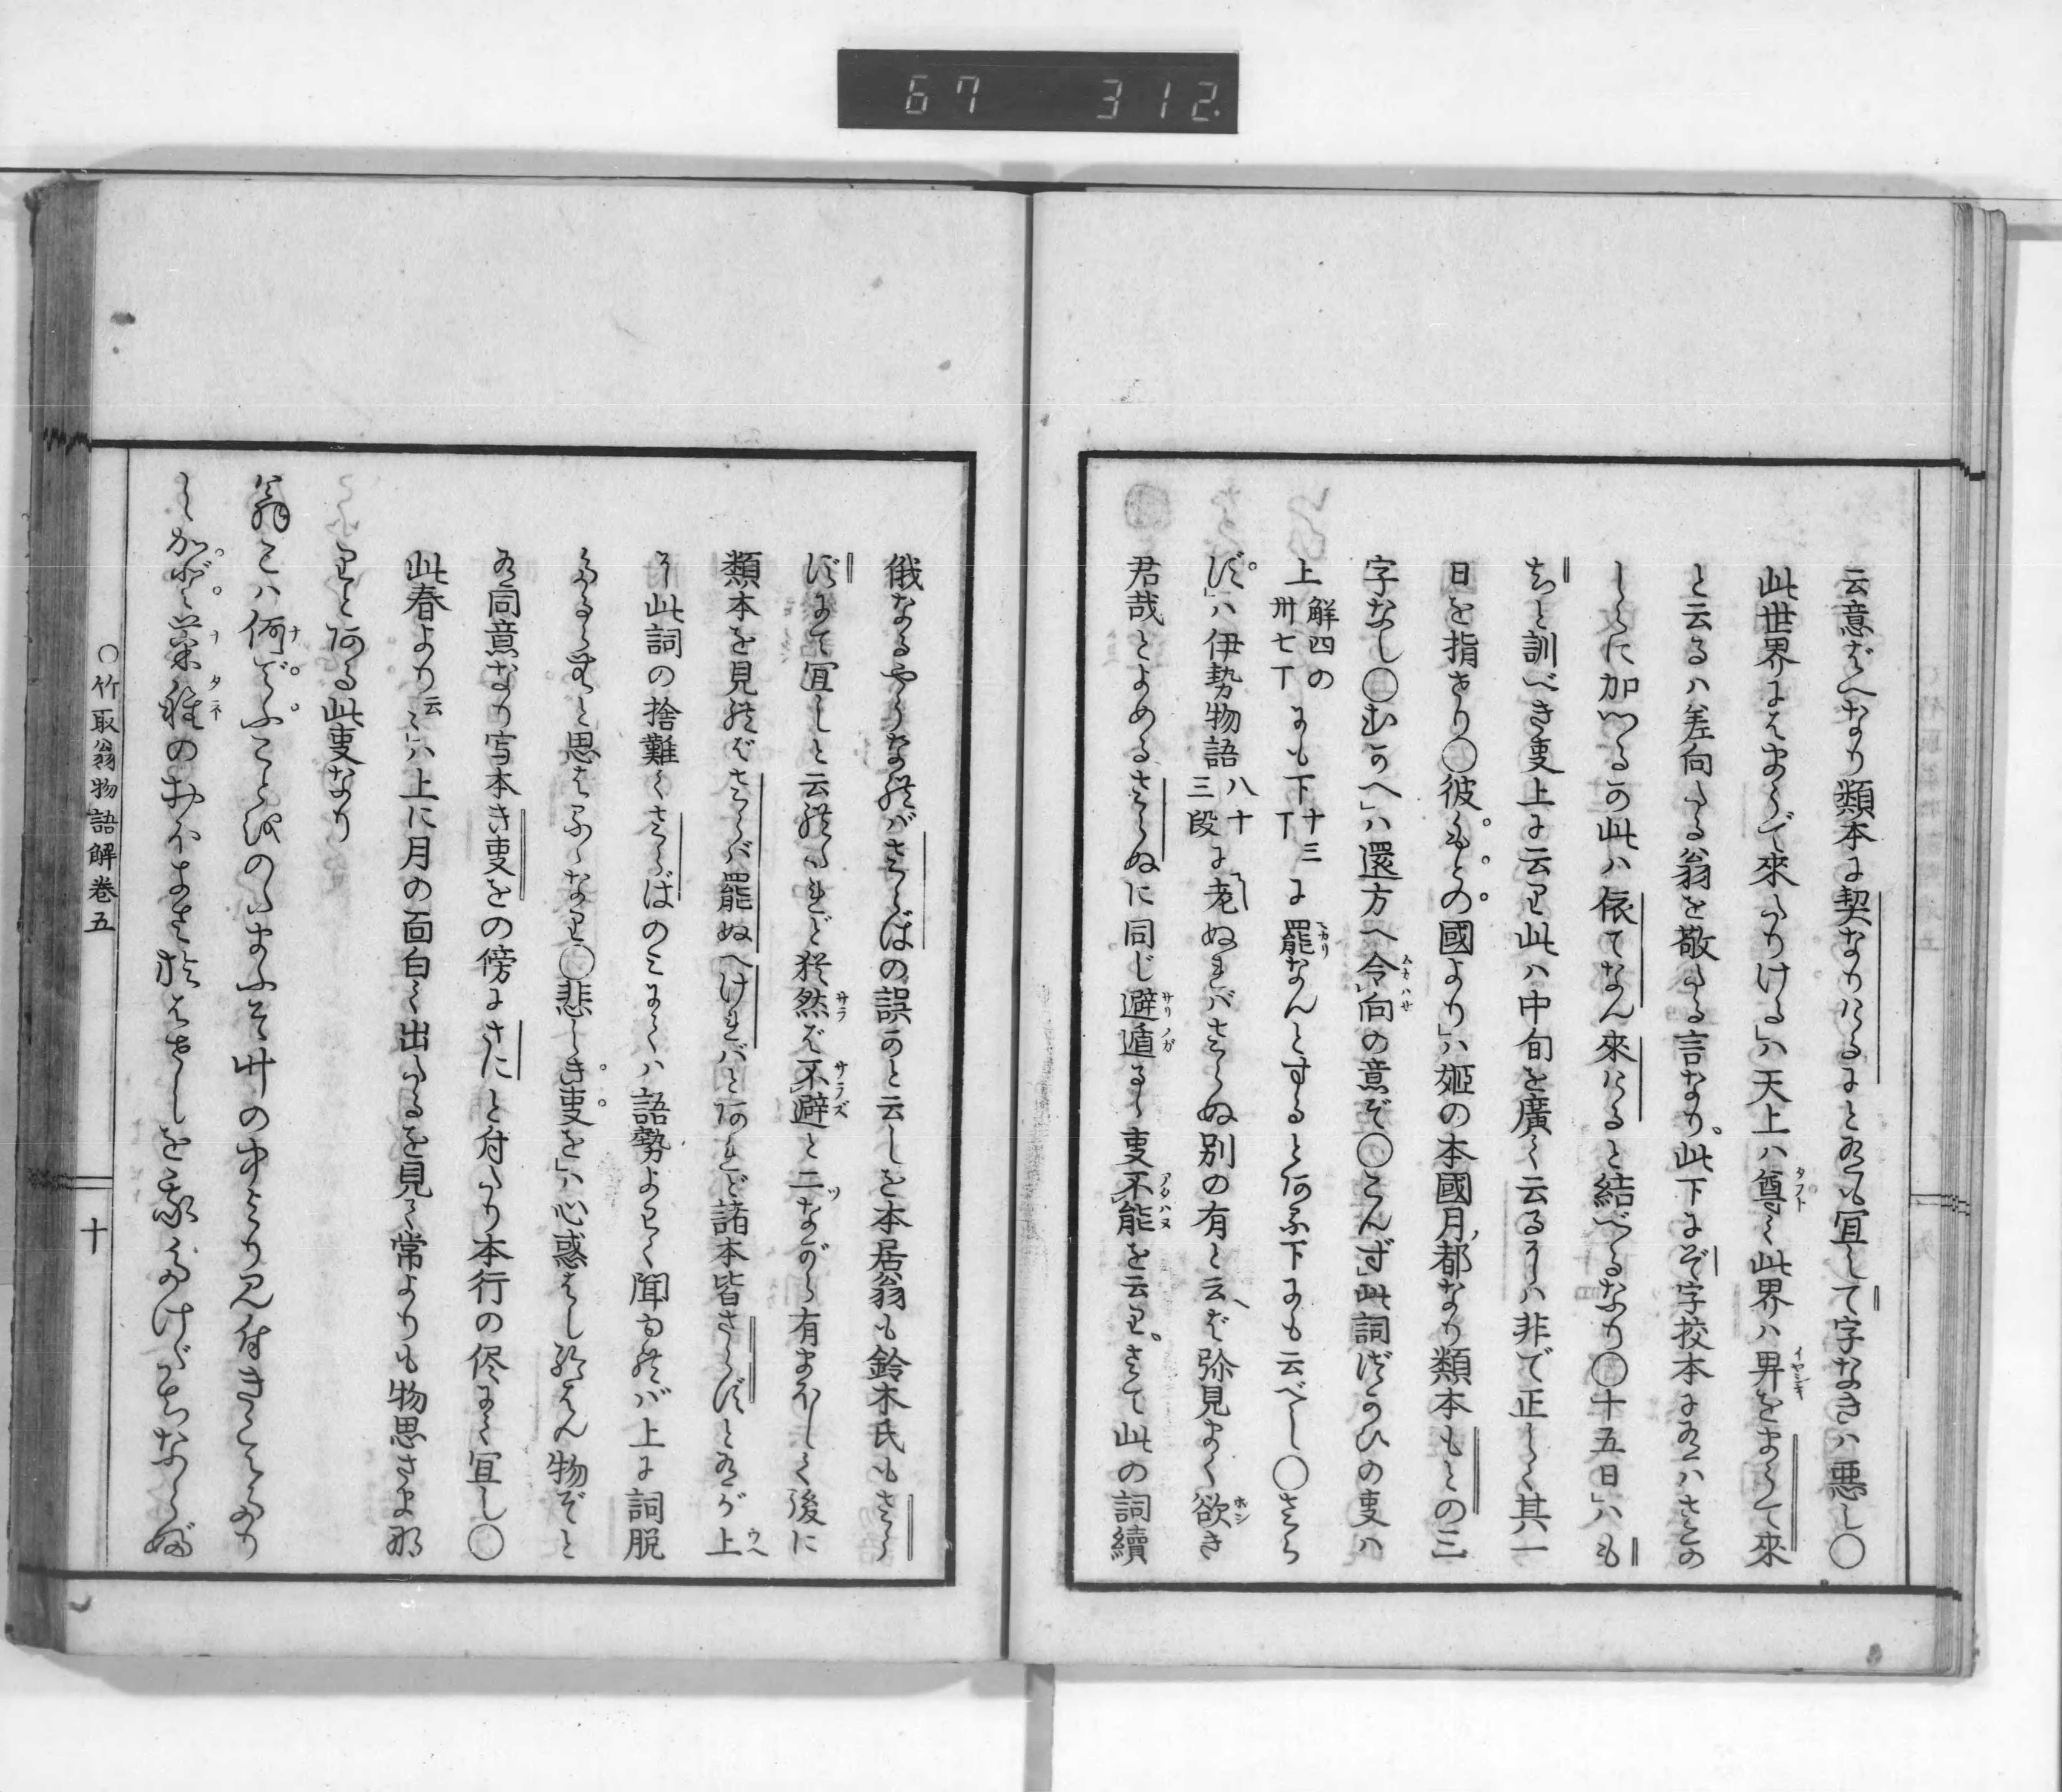 67 312
云意ばへなり類本に契なりけるにと有も宜して字なきハ悪し○
此世界にはまうで來たりける」ハ天上ハ尊く此界ハ卑きをまうて來
と云るハ差向たる翁を敬たる言なり、此下にぞ字挍本に有ハさきの
しらに加へる可此ハ依てなん來けると結べるなり○十五日」ハも
ちと訓べき事上に云り此ハ中旬を廣く云るにハ非で正しく其一
日を指せり○彼もとの國より」ハ姫の本國月都なり類本もとの三
字なし○むかへ」ハ還方へ令向の意ぞ○こんず」此詞づかひの事ハ
上解四の卅七丁にも下十三丁に罷なんとすると有ふ下にも云べし○さら
ず」ハ伊勢物語八十三段に老ぬればさらぬ別の有と云へば弥見まく欲き
君哉とよめるさらぬに同じ避遁るゝ事不能を云り、さて此の詞續
俄なるやうなればさらばの誤かと云しを本居翁も鈴木氏もさら
ずにて宜しと云れたれど猶然ば不避と二つながら有まほしく後に
類本を見ればさらバ罷ぬべけれバとあれど諸本皆さらずと有が上
に此詞の捨難くさらばのミにてハ語勢よわく聞ゆれバ上に詞脱
たるらむと思はるゝなり○悲しき事を」ハ心惑はし給はん物ぞと
有同意なり写本き事をの傍にさにと付たり本行の侭にて宜し○
此春より云々」ハ上に月の面白く出たるを見て常よりも物思さま那
りと有る此事なり
翁こハ何でふことをのたまふぞ竹の中より見付きこえたり
しかど菜種のおほきさおはせしを我たけだちならぶ
○竹取翁物語解巻五
十